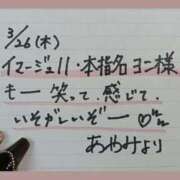 3/26(木)
イマージュ11・本指名 ヨニ様
も一 笑って、感じて、
いそがしいぞー♡
あやみより